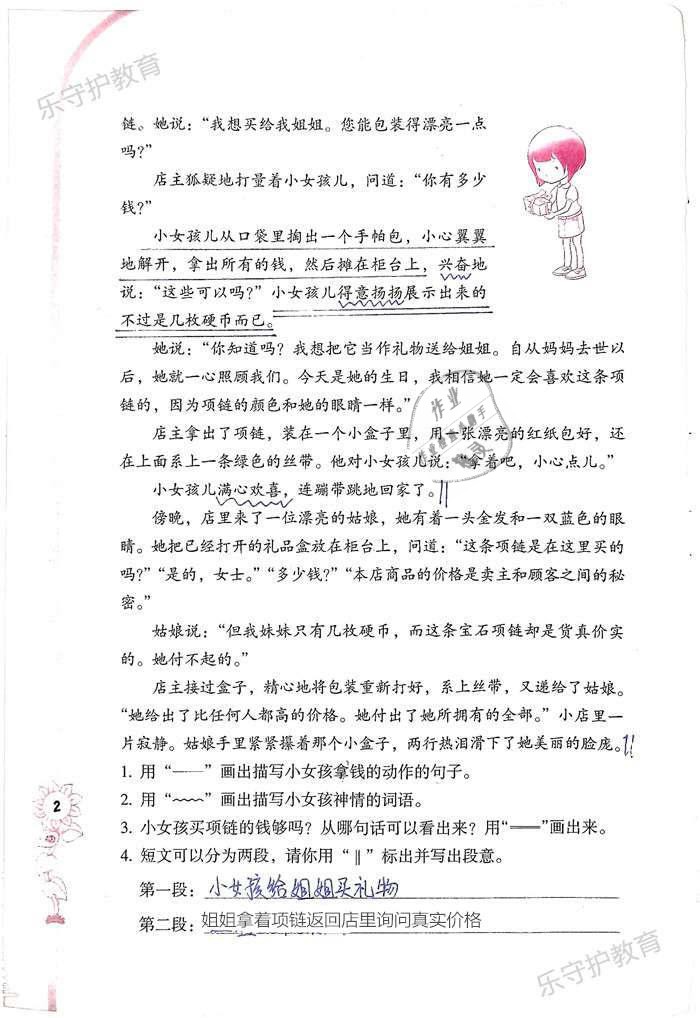 乐守护教育
链。她说：“我想买给我姐姐。您能包装得漂亮一点
吗？”
店主狐疑地打量着小女孩儿，问道：“你有多少
钱？”
小女孩儿从口袋里掏出一个手帕包，小心翼翼
地解开，拿出所有的钱，然后摊在柜台上，兴奋地
说：“这些可以吗？”小女孩儿得意扬扬展示出来的
不过是几枚硬币而已。
她说：“你知道吗？我想把它当作礼物送给姐姐。自从妈妈去世以
后，她就一心照顾我们。今天是她的生日，我相信她一定会喜欢这条项
链的，因为项链的颜色和她的眼睛一样。”
店主拿出了项链，装在一个小盒子里，用一张漂亮的红纸包好，还
在上面系上一条绿色的丝带。他对小女孩儿说：“拿着吧，小心点儿。”
小女孩儿满心欢喜，连蹦带跳地回家了。‖
傍晚，店里来了一位漂亮的姑娘，她有着一头金发和一双蓝色的眼
睛。她把已经打开的礼品盒放在柜台上，问道：“这条项链是在这里买的
吗？”“是的，女士。”“多少钱？”“本店商品的价格是卖主和顾客之间的秘
密。”
姑娘说：“但我妹妹只有几枚硬币，而这条宝石项链却是货真价实
的。她付不起的。”
店主接过盒子，精心地将包装重新打好，系上丝带，又递给了姑娘。
“她给出了比任何人都高的价格。她付出了她所拥有的全部。”小店里一
片寂静。姑娘手里紧紧攥着那个小盒子，两行热泪滑下了她美丽的脸庞。‖
1. 用“——”画出描写小女孩拿钱的动作的句子。
2. 用“﹏﹏”画出描写小女孩神情的词语。
3. 小女孩买项链的钱够吗？从哪句话可以看出来？用“══”画出来。
4. 短文可以分为两段，请你用“‖”标出并写出段意。
第一段：小女孩给姐姐买礼物
第二段：姐姐拿着项链返回店里询问真实价格
2
作业
乐守护教育